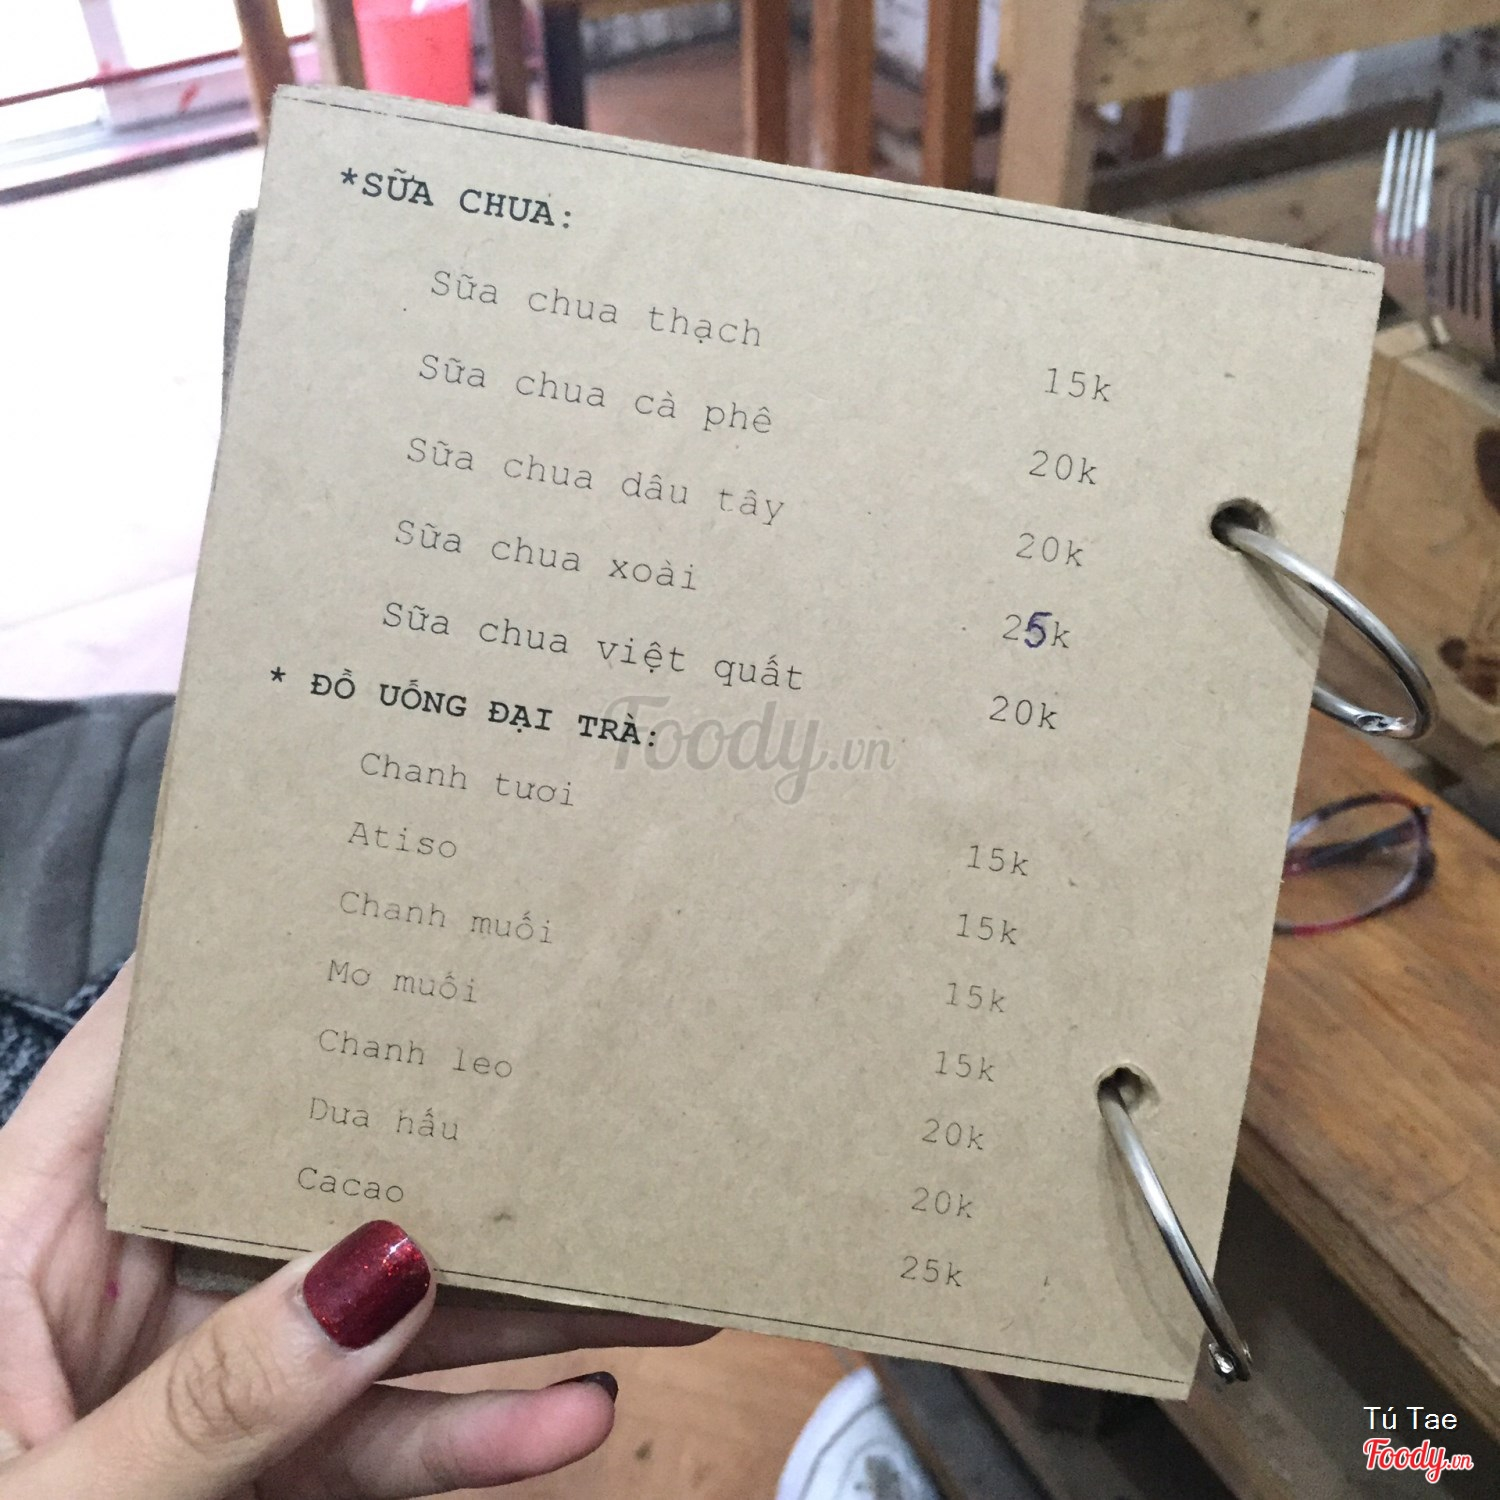 *SỮA CHUA:
Sữa chua thạch 15k
Sữa chua cà phê 20k
Sữa chua dâu tây 20k
Sữa chua xoài 25k
Sữa chua việt quất 20k
* ĐỒ UỐNG ĐẠI TRÀ:
Chanh tươi 15k
Atiso 15k
Chanh muối 15k
Mơ muối 15k
Chanh leo 20k
Dưa hấu 20k
Cacao 25k
Foody.vn
Tú Tae
Foody.vn